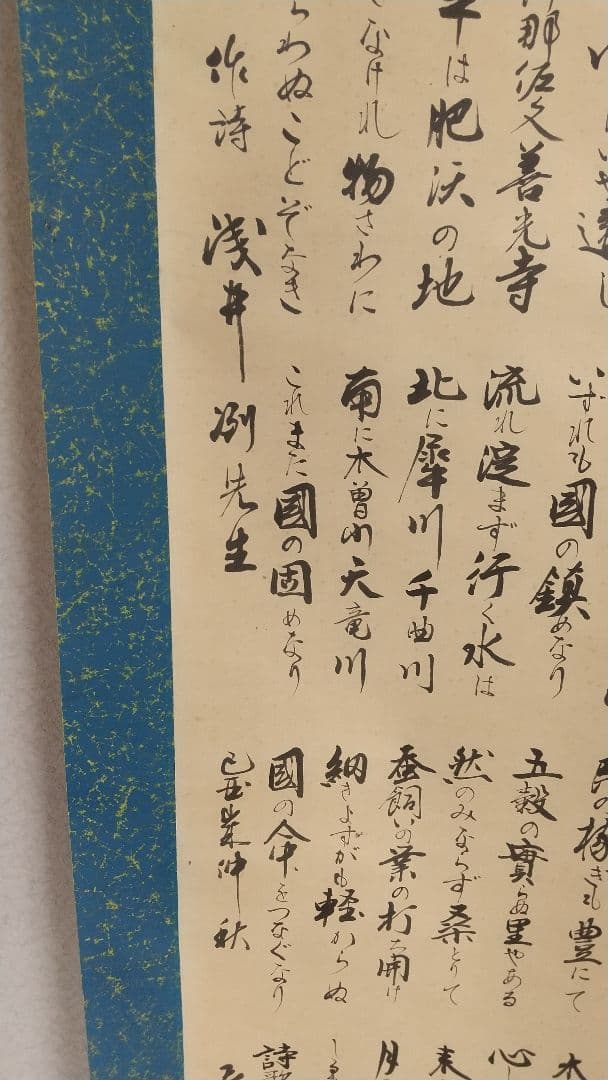 いや遠し
那佐久善光寺
平は肥沃の地
なけれ物さわに
らわぬことぞなき
作詩 淺井冽先生
いずれも國の鎮めなり
流れ淀まず行く水は
北に犀川千曲川
南に木曽川天竜川
これまた國の固めなり
民の稼ぎも豊にて
五穀の實らぬ里やある
然のみならず桑とりて
蚕飼いの業の打ち開け
細きよすがも軽からぬ
國の命をつなぐなり
己酉歳仲秋
木
心
来
月
詩歌